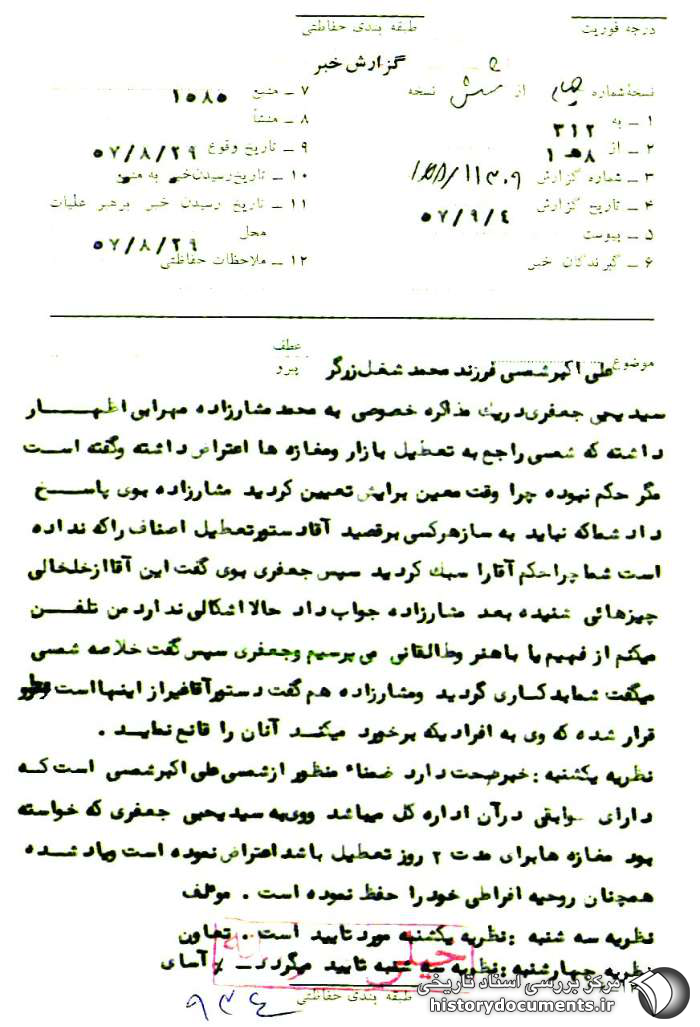 درجه فوریت
طبقه بندی حفاظتی
گزارش خبر
نسخه شماره چهار از شش نسخه
۱ ــ به ۳۱۲
۲ ــ از ۸ هـ ۱
۳ ــ شماره گزارش
۴ ــ تاریخ گزارش ۵۷/۹/۴
۵ ــ پیوست
۶ ــ گیرندگان خبر
۷ ــ منبع ۱۰۸۵
۸ ــ منشأ
۹ ــ تاریخ وقوع ۵۷/۸/۲۹
۱۰ ــ تاریخ رسیدن خبر به منبع
۱۱ ــ تاریخ رسیدن خبر برهبر عملیات
محل ۵۷/۸/۲۹
۱۲ ــ ملاحظات حفاظتی
عطف
پیرو
موضوع علی اکبر شمسی فرزند محمد شغل زرگر
سید یحیی جعفری در یک مذاکره خصوصی به محمد مشارزاده مهرابی اظهار
داشته که شمسی راجع به تعطیل بازار و مغازه ها اعتراض داشته و گفته است
مگر حکم نبوده چرا وقت معین برایش تعیین کردید مشارزاده بوی پاسخ
داد شما که نباید به ساز هر کسی برقصید آقا دستور تعطیل اصناف را که نداده
است شما چرا حکم آقا را سبک کردید سپس جعفری بوی گفت این آقا از خلخالی
چیزهائی شنیده بعد مشارزاده جواب داد حالا اشکالی ندارد من تلفن
میکنم از فهیم یا باهنر و طالقانی می پرسیم و جعفری سپس گفت خلاصه شمسی
میگفت شما بد کاری کردید و مشارزاده هم گفت دستور آقا غیر از اینها است و
قرار شده که وی به افرادیکه برخورد میکند آنان را قانع نماید .
نظریه یکشنبه : خبر صحت دارد ضمناً منظور از شمسی علی اکبر شمسی است که
دارای سوابقی در آن اداره کل میباشد و وی به سید یحیی جعفری که خواسته
بود مغازه ها برای مدت ۲ روز تعطیل باشد اعتراض نموده است و یاد شده
همچنان روحیه افراطی خود را حفظ نموده است . موئلف
نظریه سه شنبه : نظریه یکشنبه مورد تایید است . تعاون
نظریه چهارشنبه : نظریه سه شنبه تایید میگردد ــ آسای
خیلی
طبقه بندی حفاظتی
۹۳۴
مرکز بررسی اسناد تاریخی
historydocuments.ir